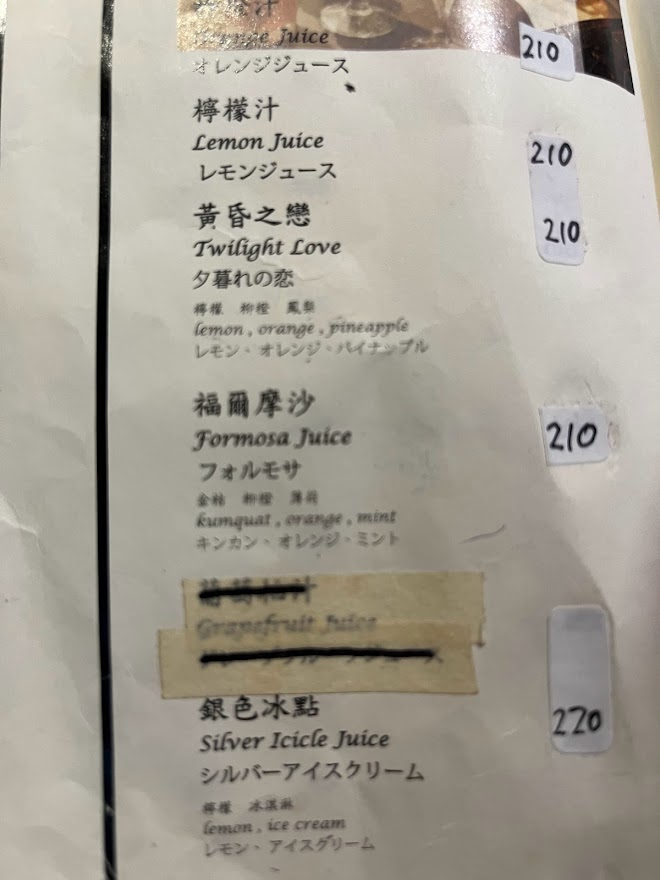 Orange Juice 210
オレンジジュース
檸檬汁
Lemon Juice 210
レモンジュース
黃昏之戀
Twilight Love 210
夕暮れの恋
檸檬 柳橙 鳳梨
lemon , orange , pineapple
レモン、オレンジ、パイナップル
福爾摩沙
Formosa Juice 210
フォルモサ
金桔 柳橙 薄荷
kumquat , orange , mint
キンカン、オレンジ、ミント
Grapefruit Juice
銀色冰點 220
Silver Icicle Juice
シルバーアイスクリーム
檸檬 冰淇淋
lemon , ice cream
レモン、アイスクリーム